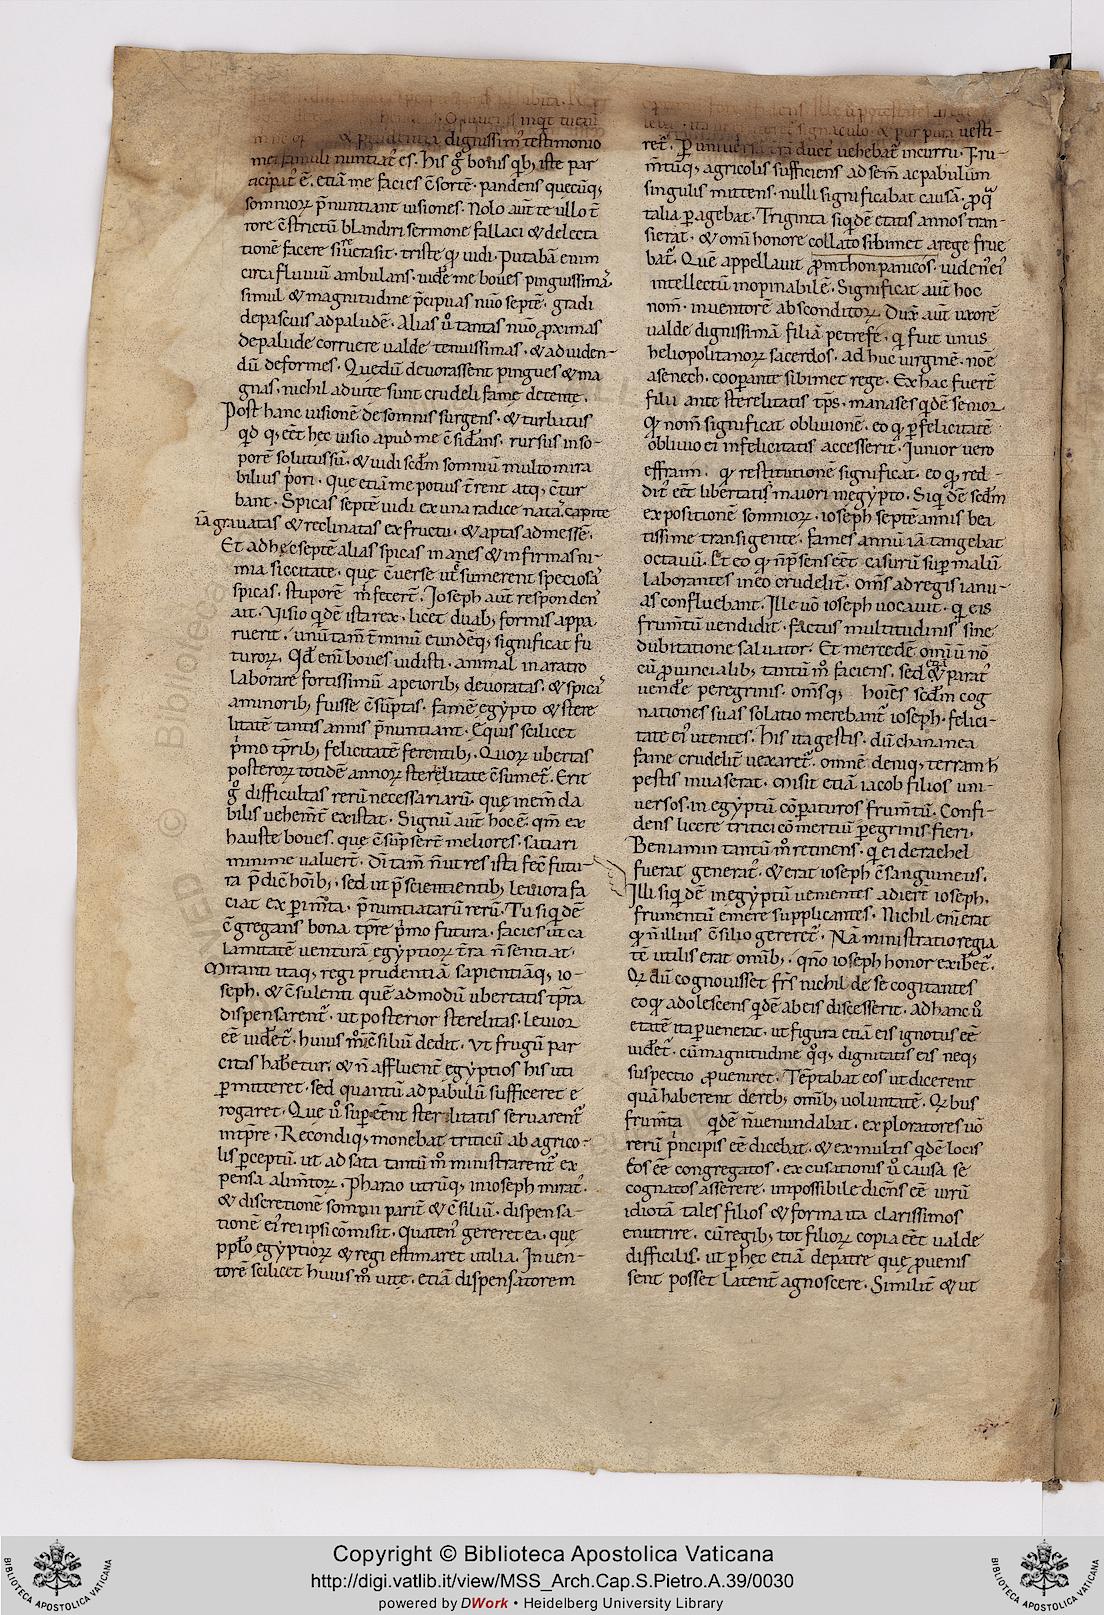 dignissimo testimonio
mei famuli nuntiat᷒ es. his g̊ bonis qb; iste par
ticipat᷒ ē. etiā me facies c̄sortē. pandens quecūq;
somniorꝝ p̄nuntiant visiones. Nolo aut̄ te ullo t̄
rore c̄strictū blandiri sermone fallaci & delecta
tionē facere si
triste qd vidi. Putabā enim
circa fluviū ambulans. vidē me boves pinguissimā
simul & magnitudine p̄cipuas nūo septē. gradi
de pascuis ad paludē. Alias ů tantas nūo ꝓximas
de palude corruere valde tenuissimas. & ad viden-
dū deformes. Que dū devorassent pingues & ma
gnas. nichil adiute sunt crudeli fame detente.
Post hanc visionē de somnis surgens. & turbatus
qd q; eēt hec visio apud me c̄sid̄ans. rursus in so-
porē solutus sū. & vidi sed̄m somniū multo mira
bilius p̄ori. que etiā me potius t̄rent atq; c̄tur
bant. Spicas septē vidi ex una radice natas. capite
iā gravatas & reclinatas ex fructu. & aptas ad messē.
Et ad hęc septē alias spicas inanes & infirmas ni-
mia siccitate. que c̄verse ut sumerent speciosā
spicas. stuporē m̄ fecer̄. Ioseph aut̄ responden᷒
ait. Visio qdē ista rex. licet duab; formis appa
ruerit. unū tam̄ t̄minū eundēq; significat fu
turorꝝ. Qd eni boves vidisti. animal in aratro
laborare fortissimū a peiorib; devoratas. & spicā
a minorib; fuisse c̄sūptas. famē egypto & stere
litatē tantis annis p̄nuntiant. Equis scilicet
p̄mo tp̄rib; felicitatē ferentib;. Quorꝝ ubertas
posterorꝝ totidē annorꝝ sterelitate c̄sumet᷒. Erit
g̊ difficultas rerū necessariarū. que inem̄da
bilis vehem̄t existat. Signū aut̄ hoc ē. qm̄ ex
hauste boves. que c̄sūpsert̄ meliores. satiari
minime valuert̄. Di tam̄ n̄ ut res ista fcē futu-
ra p̄dic̄ hoīb;. sed ut p̄scientientib; leviora fa
ciat experim̄ta. p̄nuntiatarū rerū. Tu siqdē
c̄gregans bona tp̄re p̄mo futura. facies ut ca
lamitatē venturā egyptiorꝝ t̄ra n̄ sentiat.
Miranti itaq; regi prudentiā sapientiāq; io-
seph. & c̄sulenti quē admodū ubertatis tp̄ra
dispensarent᷒. ut posterior sterelitas. levior
eē videt᷒. huius m̊i c̄siliū dedit. Ut frugū par
citas habetur. & n̄ affluent̄ egyptios his uti
ꝑmitteret. sed quantū ad pabulū sufficeret e
rogaret. Que ů suꝑeēnt sterilitatis servarent᷒
in tp̄re. Recondiq; monebat triticū ab agrico-
lis ꝑceptū. ut ad sata tantū m̊ ministrarent᷒ ex
pensa alim̄torꝝ. Pharao utrūq; in ioseph mirat᷒.
& discretionē somnii parit̄ & c̄siliū. dispensa-
tionē ei᷒ rei ipsi cōmisit. quaten᷒ gereret ea. quę
pplo egyptiorꝝ & regi estimaret utilia. Inven-
torē scilicet huius m̊ vitę. etiā dispensatorem
signaculo. & purpura vesti-
ret᷒. Ꝑ universā t̄rā
vehebat᷒ in curru. Fru-
m̄tūq; agricolis sufficiens ad sem̄ ac pabulum
singulis mittens. nulli significabat causā. ꝓ q̄
talia ꝑagebat. Triginta siqdē etatis annos tran-
sierat. & omi honore collato sibimet a rege frue
bat᷒. Que appellavit ꝓmthonpanicos. videns ei᷒
intellectū inopinabilē. Significat aut̄ hoc
nom̄. inventorē absconditorꝝ. Duxit aut̄ uxorē
valde dignissimā filiā petrefę. q̄ fuit unus
heliopolitanorꝝ sacerdos. ad huc virginē. noē
asenech. cooperante sibimet rege. Ex hac fuerē
filii ante sterelitatis tp̄s. manases qdē senior.
Qd nom̄ significat oblivionē. eo qd ꝑ felicitatē
oblivio ei infelicitatis accesserit. Iunior vero
effraim. qd restitutionē significat. eo qd red-
dit᷒ eēt libertatis maiori in egypto. Siqdē sed̄m
expositionē somniorꝝ. ioseph septē annis bea
tissime transigente. fames annū iā tangebat
octavū. Et eo qd n̄ p̄sensa eēt casurū suꝑ malū
laborantes in eo crudelit̄. om̄s ad regis ianu-
as confluebant. Ille vō ioseph vocavit. q̄ eis
frum̄tū vendidit. factus multitudinis sine
dubitatione salvator. Et mercedē
cū ꝓvincialib; tantū m̊ faciens. sed
vende peregrinis. om̄sq; hoīes sed̄m cog
nationes suas solatio merebant᷒ ioseph. felici-
tate ei᷒ utentes. His ita gestis. dū chananea
fame crudelit̄ vexaret᷒. omnē deniq; terram h
pestis invaserat. Misit etiā iacob filios uni-
versos. in egyptū cōparaturos frum̄tū. Confi-
dens licere tritici cōmertiū peregrinis fieri.
Beniamin tantū m̊ retinens. q̄ ei de rachel
fuerat generat᷒. & erat ioseph c̄sanguineus.
Illi siqdē in egyptū venientes adiert̄ ioseph.
frumentū emere supplicantes. Nichil eni erat
qd n̄ illius c̄silio gereret᷒. Nā ministratio regia
tē utilis erat omib;. qn̄o ioseph honor exibet᷒.
Qd dū cognovisset frs̄ nichil de se cogitantes
eo qd adolescens qdē ab eis discesserit. ad hanc ů
etatē ita ꝑvenerat. ut figura etiā eis ignotus eē
videt᷒. cū magnitudine q̊q; dignitatis eis neq;
suspectio ꝓveniret. Tēptabat eos ut dicerent
quā haberent de reb; omib; voluntatē. Qd bus
frum̄ta qdē n̄ venundabat. exploratores vō
rerū p̄ncipis eē dicebat. & ex multis qdē locis
eos eē congregatos. excusationis ů causa se
cognatos asserere. impossibile dicens eē virū
idiotā tales filios & forma ita clarissimos
enutrire. cū regib; tot filiorꝝ copia eēt valde
difficilis. ut ꝑ hęc etiā de patre quę ꝓvenis
sent posset latent̄ agnoscere. Similit̄ & ut
Copyright © Biblioteca Apostolica Vaticana
http://digi.vatlib.it/view/MSS_Arch.Cap.S.Pietro.A.39/0030
powered by DWork • Heidelberg University Library
BIBLIOTECA APOSTOLICA VATICANA
BIBLIOTECA APOSTOLICA VATICANA